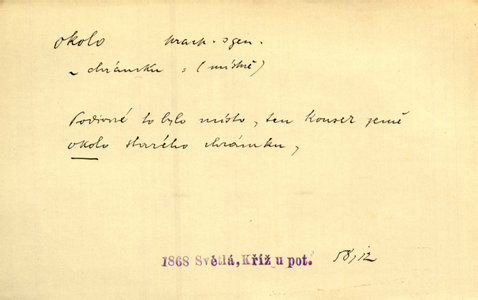 okolo praep. s gen.
~ chrámku = (místně)
Podivné to bylo místo, ten
okolo starého chrámku,
1868 Světlá, Kříž u pot. 58,12